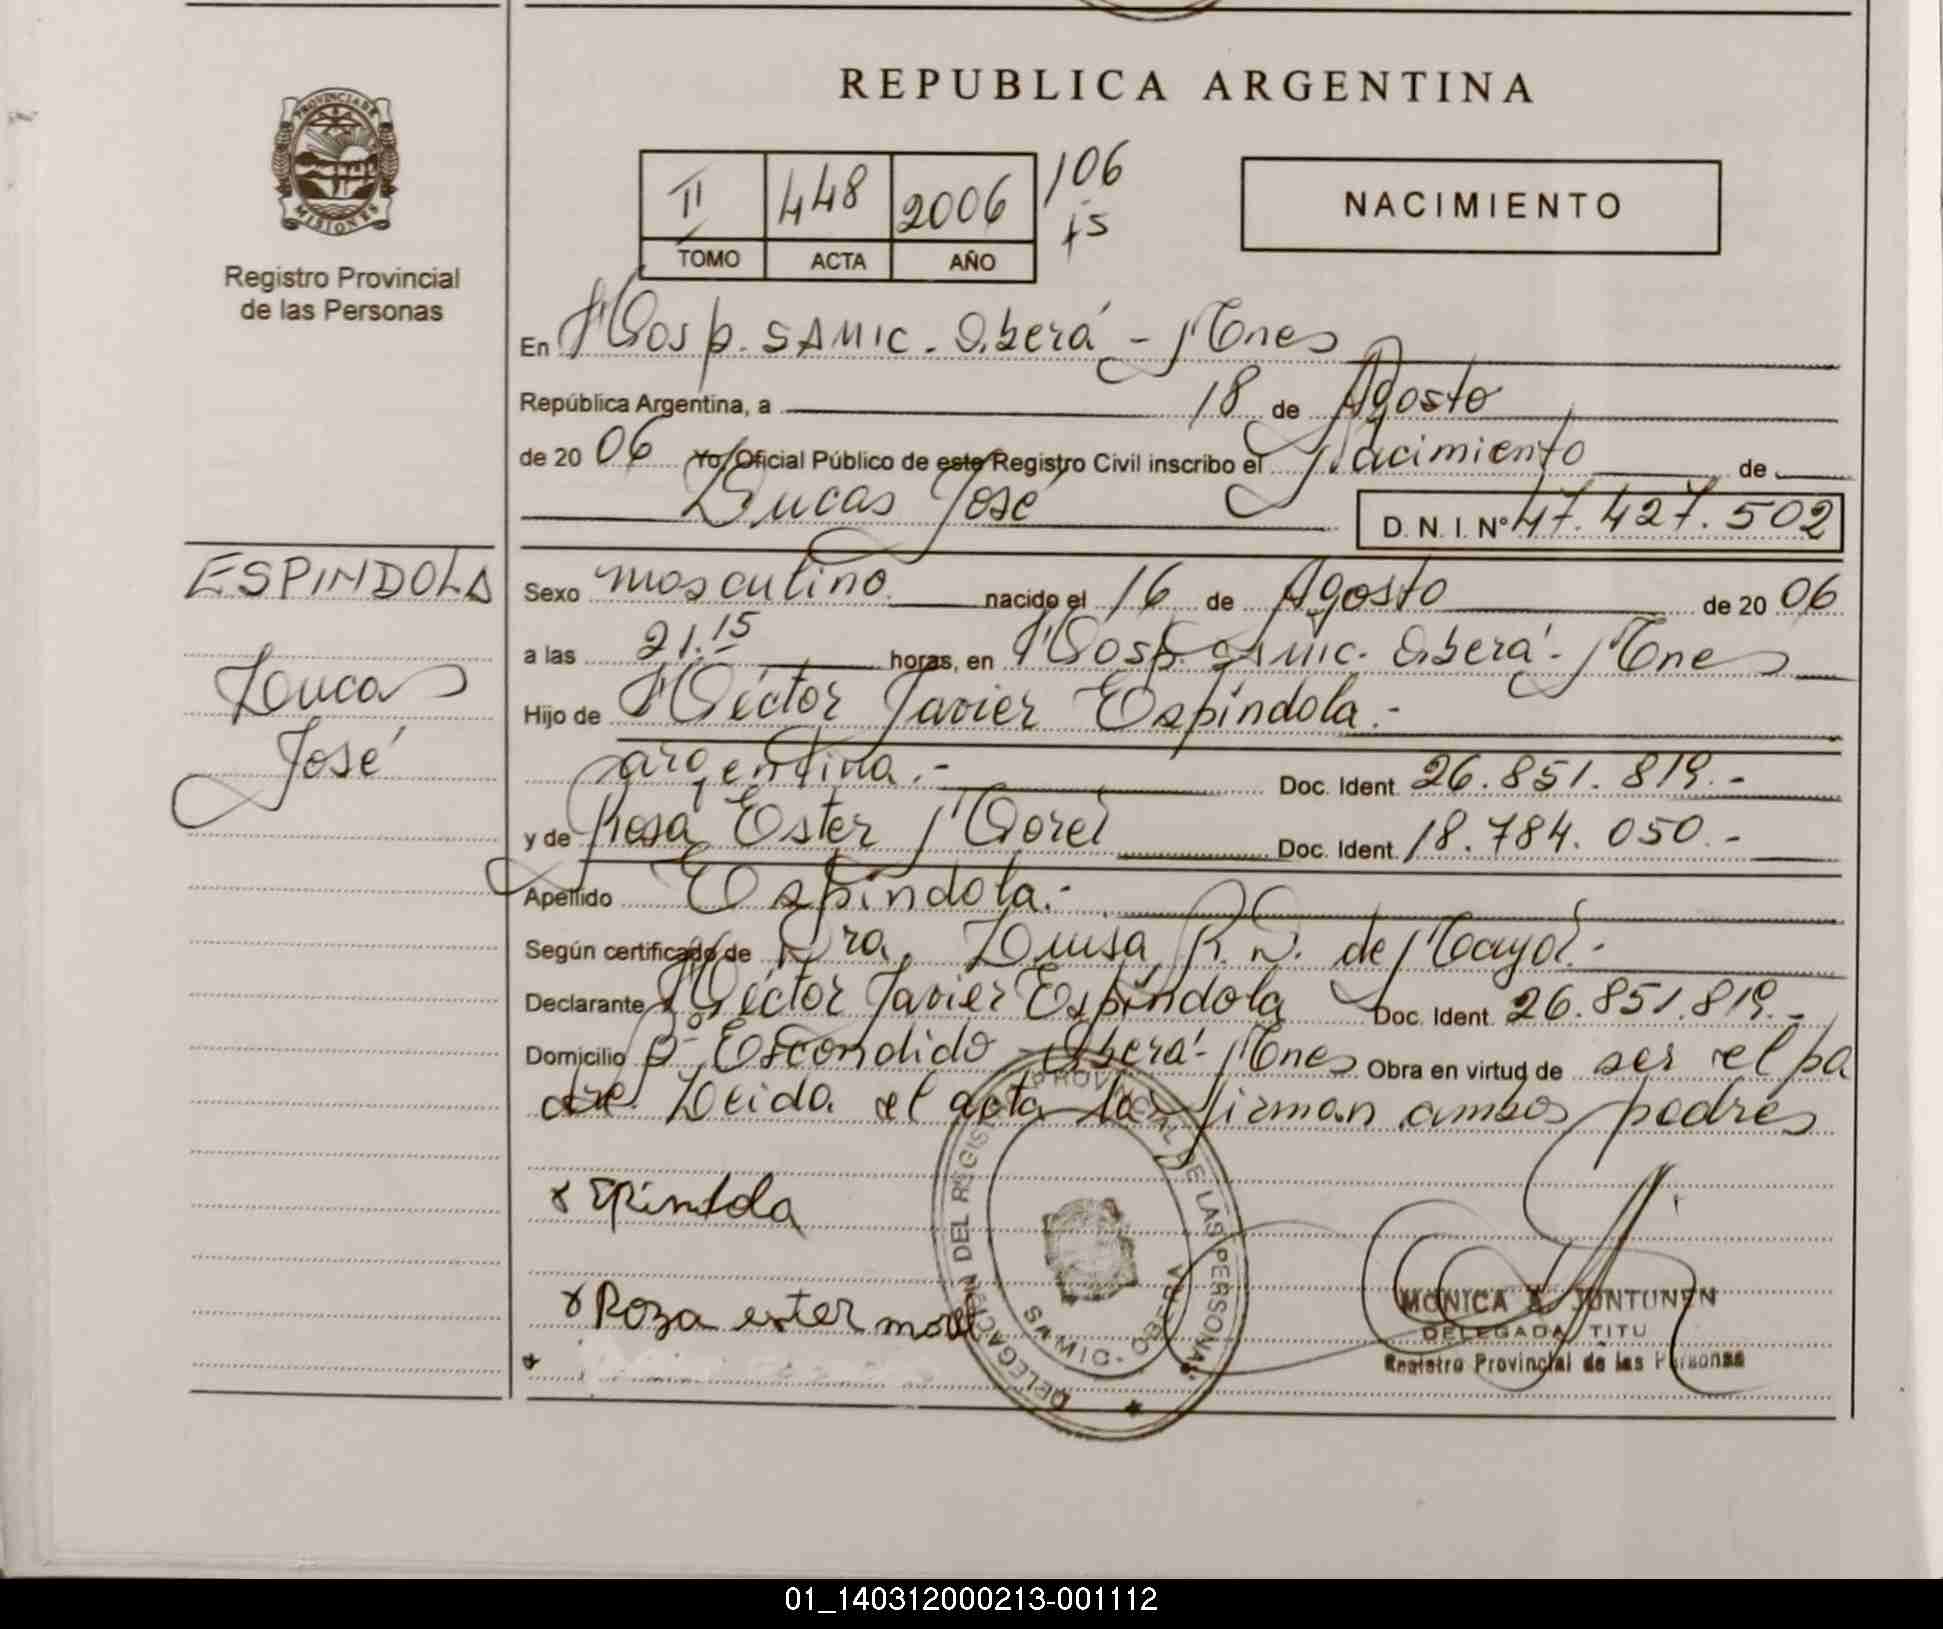 REPUBLICA ARGENTINA
PROVINCIA DE
MISIONES
Registro Provincial
de las Personas
II 448 2006 106
TOMO ACTA AÑO
fs
NACIMIENTO
En Hosp. SAMIC. Oberá - Mnes
República Argentina, a 18 de Agosto
de 2006 Yo, Oficial Público de este Registro Civil inscribo el Nacimiento de
Lucas José D. N. I. Nº 47.427.502
ESPINDOLA
Lucas
José
Sexo masculino nacido el 16 de Agosto de 2006
a las 21.15 horas, en Hosp. SAMIC. Oberá - Mnes
Hijo de Héctor Javier Espíndola.-
argentina.- Doc. Ident. 26.851.819.-
y de Rosa Ester Morel Doc. Ident. 18.784.050.-
Apellido Espíndola.-
Según certificado de Dra. Luisa R. D. de
Declarante Héctor Javier Espíndola Doc. Ident. 26.851.819.-
Domicilio Bº Escondido Oberá - Mnes Obra en virtud de ser el pa
dre. Leida el acta la firman ambos padres
x Epindola
x Roza ester morel
DELEGACIÓN DEL REGISTRO PROVINCIAL DE LAS PERSONAS
SAMIC - OBERA
MONICA JUNTUNEN
DELEGADA TITU
Registro Provincial de las Personas
01_140312000213-001112